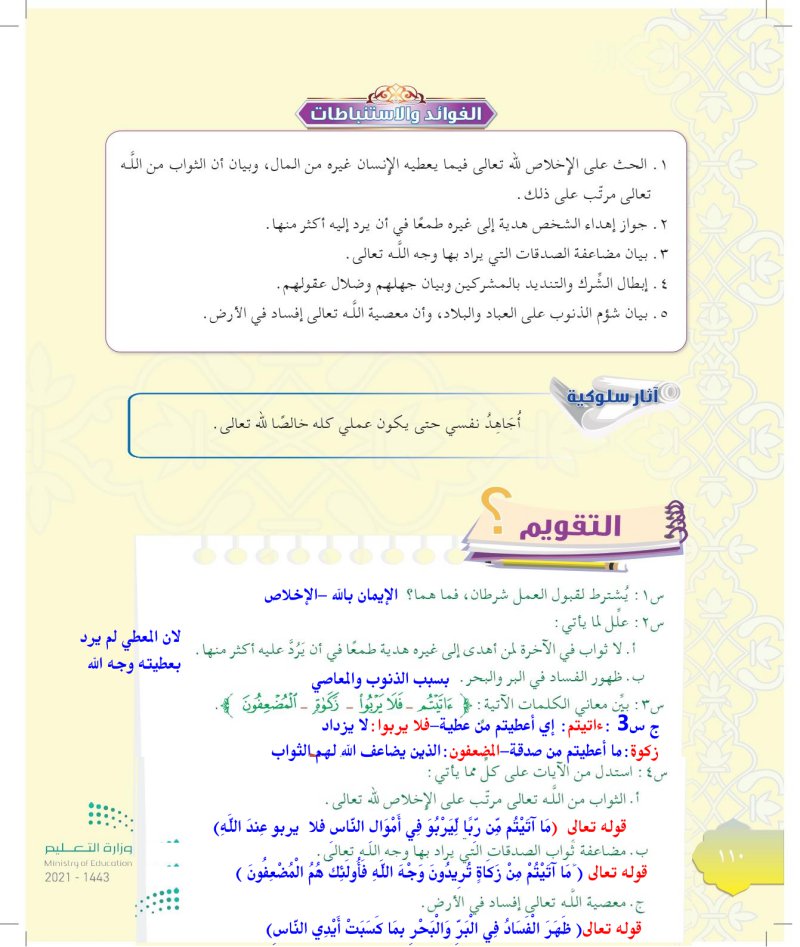 الفوائد والاستنباطات
١. الحث على الإخلاص لله تعالى فيما يعطيه الإنسان غيره من المال، وبيان أن الثواب من اللَّـه
تعالى مرتّب على ذلك.
٢. جواز إهداء الشخص هدية إلى غيره طمعًا في أن يرد إليه أكثر منها.
٣. بيان مضاعفة الصدقات التي يراد بها وجه اللَّـه تعالى.
٤. إبطال الشِّرك والتنديد بالمشركين وبيان جهلهم وضلال عقولهم.
٥. بيان شؤم الذنوب على العباد والبلاد، وأن معصية اللَّـه تعالى إفساد في الأرض.
آثار سلوكية
أُجَاهِدُ نفسي حتى يكون عملي كله خالصًا لله تعالى.
التقويم ؟
س١: يُشترط لقبول العمل شرطان، فما هما؟ الإيمان بالله –الإخلاص
س٢: علّل لما يأتي:
أ. لا ثواب في الآخرة لمن أهدى إلى غيره هدية طمعًا في أن يَرُدَّ عليه أكثر منها.
لان المعطي لم يرد
بعطيته وجه الله
ب. ظهور الفساد في البر والبحر. بسبب الذنوب والمعاصي
س٣: بيِّن معاني الكلمات الآتية: ﴿ ءَاتَيْتُم – فَلَا يَرْبُواْ – زَكَوٰةٍ – الْمُضْعِفُونَ ﴾.
ج س3 :ءاتيتم: إي أعطيتم من عطية–فلا يربوا:لا يزداد
زكوة:ما أعطيتم من صدقة–المضعفون:الذين يضاعف الله لهم الثواب
س٤: استدل من الآيات على كلٍّ مما يأتي:
أ. الثواب من اللَّـه تعالى مرتّب على الإخلاص لله تعالى.
قوله تعالى (مَا آتَيْتُم مِّن رِّبًا لِّيَرْبُوَ فِي أَمْوَالِ النَّاسِ فلا يربو عِندَ اللَّهِ)
ب. مضاعفة ثواب الصدقات التي يراد بها وجه اللَّـه تعالى.
قوله تعالى ( مَا آتَيْتُمْ مِنْ زَكَاةٍ تُرِيدُونَ وَجْهَ اللَّهِ فَأُولَئِكَ هُمُ الْمُضْعِفُونَ )
ج. معصية اللَّـه تعالى إفساد في الأرض.
قوله تعالى( ظَهَرَ الْفَسَادُ فِي الْبَرِّ وَالْبَحْرِ بِمَا كَسَبَتْ أَيْدِي النَّاسِ)
وزارة التعـليم
Ministry of Education
2021 - 1443
١١٠